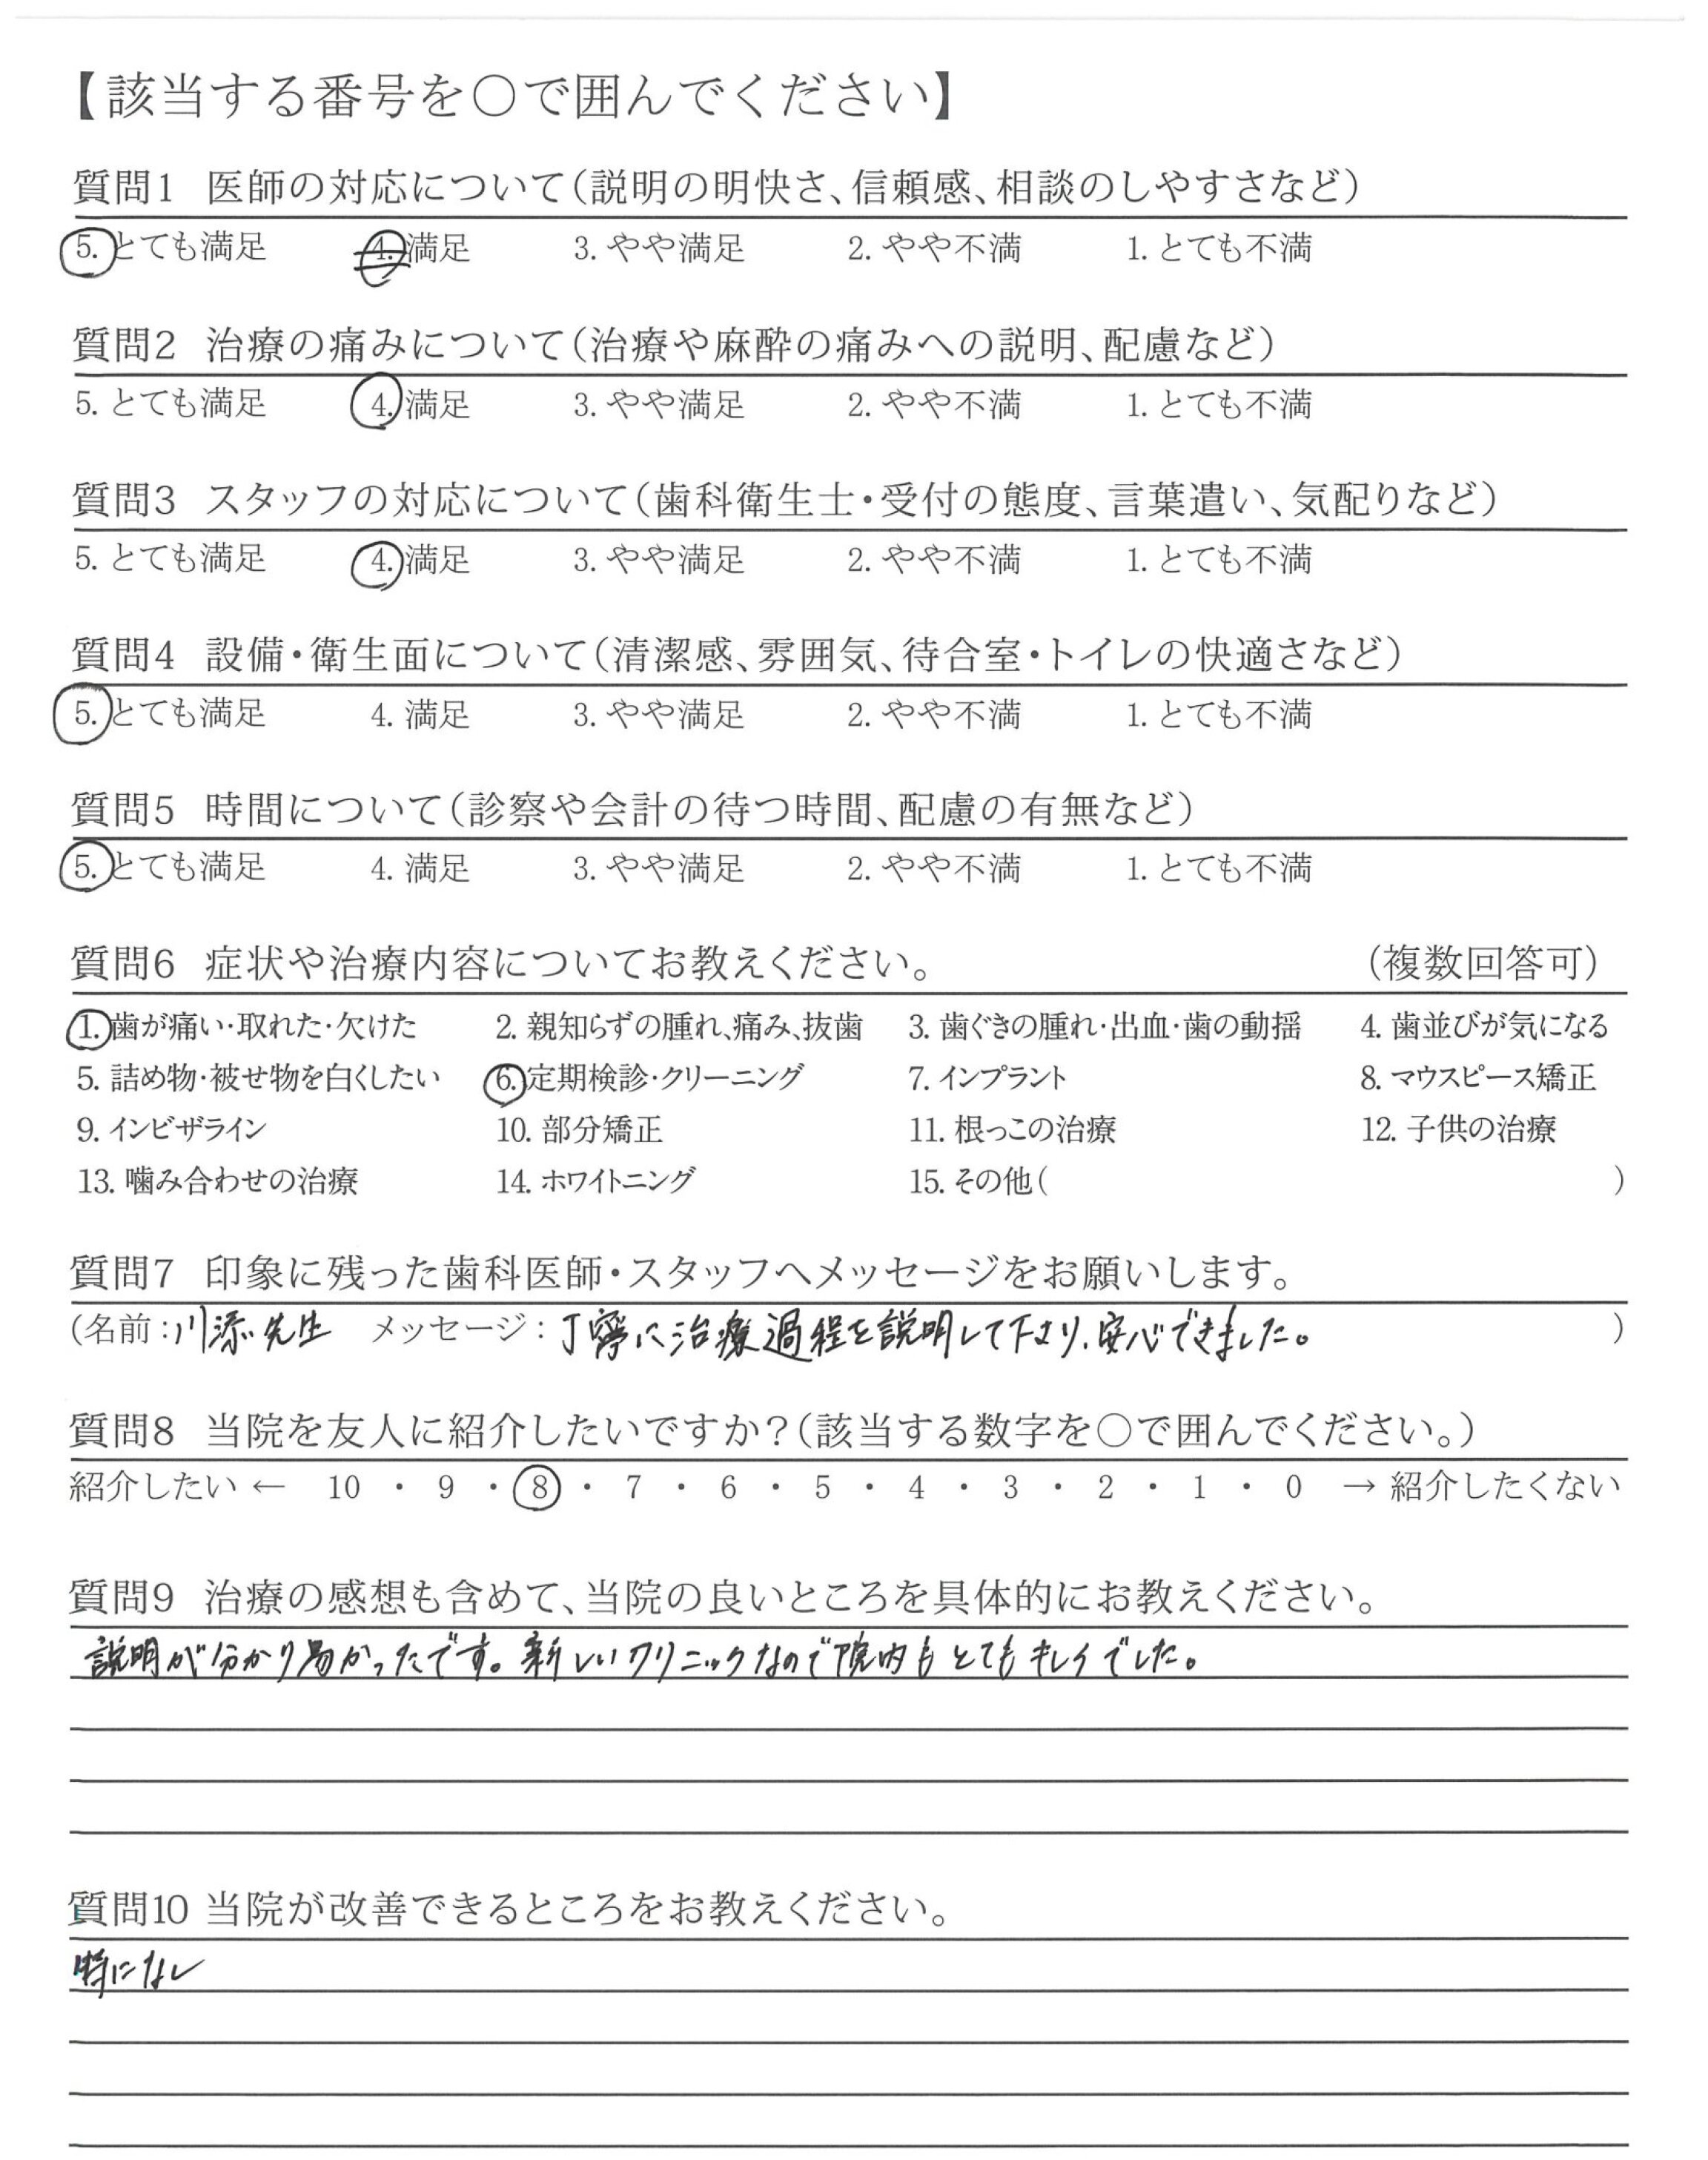 【該当する番号を○で囲んでください】
質問1 医師の対応について（説明の明快さ、信頼感、相談のしやすさなど）
5. とても満足 4. 満足 3. やや満足 2. やや不満 1. とても不満
質問2 治療の痛みについて（治療や麻酔の痛みへの説明、配慮など）
5. とても満足 4. 満足 3. やや満足 2. やや不満 1. とても不満
質問3 スタッフの対応について（歯科衛生士・受付の態度、言葉遣い、気配りなど）
5. とても満足 4. 満足 3. やや満足 2. やや不満 1. とても不満
質問4 設備・衛生面について（清潔感、雰囲気、待合室・トイレの快適さなど）
5. とても満足 4. 満足 3. やや満足 2. やや不満 1. とても不満
質問5 時間について（診察や会計の待つ時間、配慮の有無など）
5. とても満足 4. 満足 3. やや満足 2. やや不満 1. とても不満
質問6 症状や治療内容についてお教えください。 （複数回答可）
1. 歯が痛い・取れた・欠けた 2. 親知らずの腫れ、痛み、抜歯 3. 歯ぐきの腫れ・出血・歯の動揺 4. 歯並びが気になる
5. 詰め物・被せ物を白くしたい 6. 定期検診・クリーニング 7. インプラント 8. マウスピース矯正
9. インビザライン 10. 部分矯正 11. 根っこの治療 12. 子供の治療
13. 噛み合わせの治療 14. ホワイトニング 15. その他（ ）
質問7 印象に残った歯科医師・スタッフへメッセージをお願いします。
（名前：川添先生 メッセージ：丁寧に治療過程を説明して下さり、安心できました。 ）
質問8 当院を友人に紹介したいですか？（該当する数字を○で囲んでください。）
紹介したい ← 10 ・ 9 ・ 8 ・ 7 ・ 6 ・ 5 ・ 4 ・ 3 ・ 2 ・ 1 ・ 0 → 紹介したくない
質問9 治療の感想も含めて、当院の良いところを具体的にお教えください。
説明が分かり易かったです。新しいクリニックなので院内もとてもキレイでした。
質問10 当院が改善できるところをお教えください。
特になし